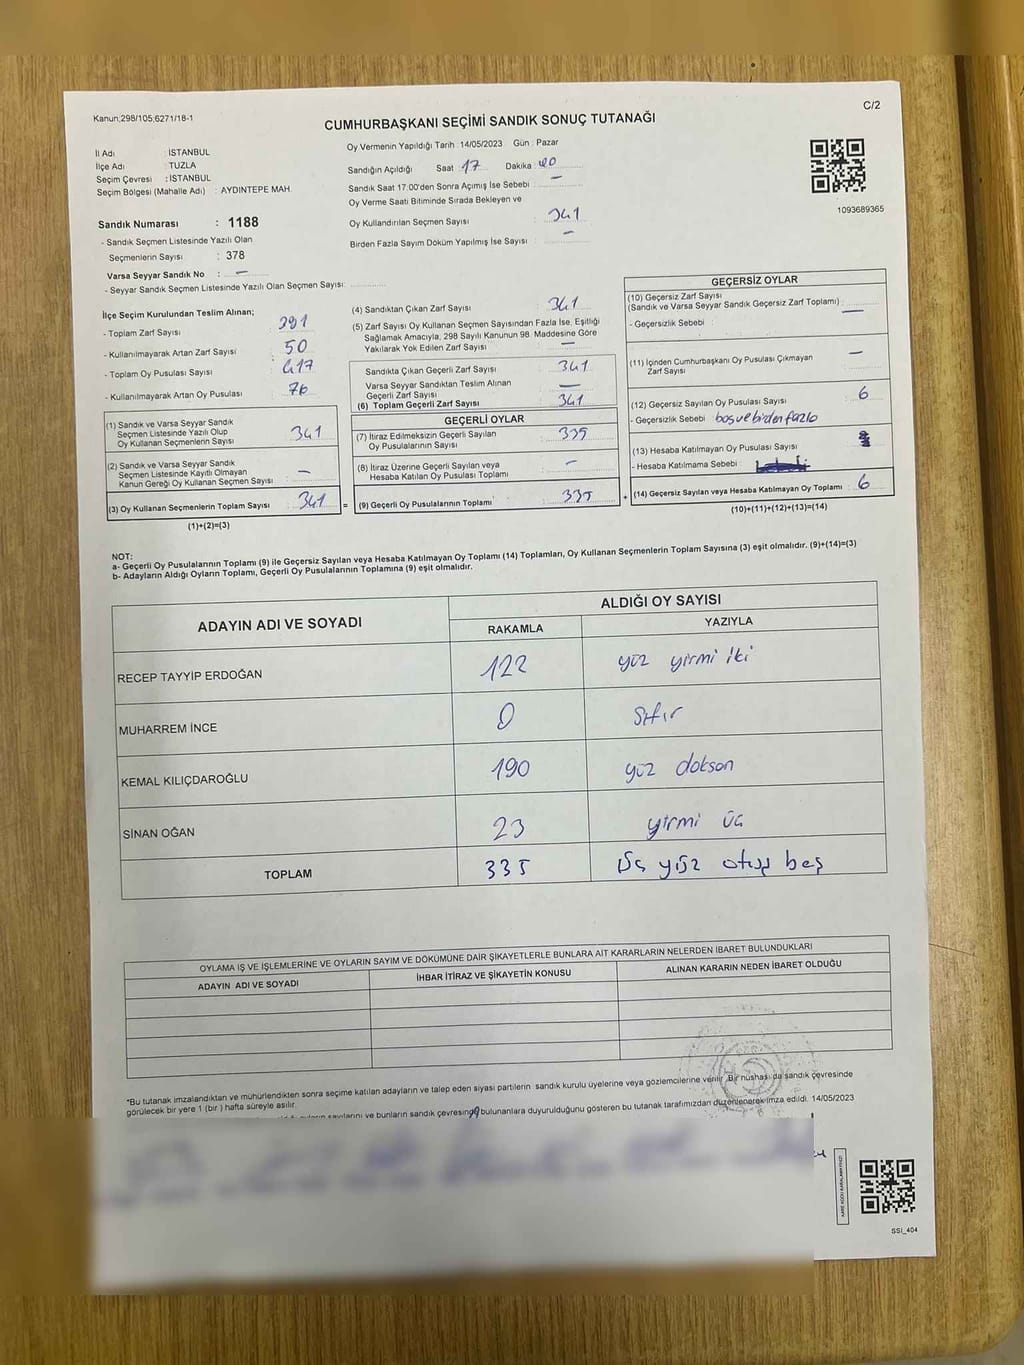 Kanun:298/105;6271/18-1
C/2
CUMHURBAŞKANI SEÇİMİ SANDIK SONUÇ TUTANAĞI
İl Adı : İSTANBUL
İlçe Adı : TUZLA
Seçim Çevresi : İSTANBUL
Seçim Bölgesi (Mahalle Adı) : AYDINTEPE MAH.
Oy Vermenin Yapıldığı Tarih : 14/05/2023 Gün : Pazar
Sandığın Açıldığı Saat : 17 Dakika : 40
Sandık Saat 17.00'den Sonra Açımış İse Sebebi : —
Oy Verme Saati Bitiminde Sırada Bekleyen ve
Oy Kullandırılan Seçmen Sayısı : 341
Birden Fazla Sayım Döküm Yapılmış İse Sayısı : —
1093689365
Sandık Numarası : 1188
- Sandık Seçmen Listesinde Yazılı Olan
Seçmenlerin Sayısı : 378
Varsa Seyyar Sandık No : —
- Seyyar Sandık Seçmen Listesinde Yazılı Olan Seçmen Sayısı:
İlçe Seçim Kurulundan Teslim Alınan;
- Toplam Zarf Sayısı : 391
- Kullanılmayarak Artan Zarf Sayısı : 50
- Toplam Oy Pusulası Sayısı : 417
- Kullanılmayarak Artan Oy Pusulası : 76
(1) Sandık ve Varsa Seyyar Sandık
Seçmen Listesinde Yazılı Olup
Oy Kullanan Seçmenlerin Sayısı : 341
(2) Sandık ve Varsa Seyyar Sandık
Seçmen Listesinde Kayıtlı Olmayan
Kanun Gereği Oy Kullanan Seçmen Sayısı : —
(3) Oy Kullanan Seçmenlerin Toplam Sayısı : 341 =
(1)+(2)=(3)
(4) Sandıktan Çıkan Zarf Sayısı : 341
(5) Zarf Sayısı Oy Kullanan Seçmen Sayısından Fazla İse, Eşitliği
Sağlamak Amacıyla, 298 Sayılı Kanunun 98. Maddesine Göre
Yakılarak Yok Edilen Zarf Sayısı : —
Sandıkta Çıkan Geçerli Zarf Sayısı : 341
Varsa Seyyar Sandıktan Teslim Alınan
Geçerli Zarf Sayısı : —
(6) Toplam Geçerli Zarf Sayısı : 341
GEÇERLİ OYLAR
(7) İtiraz Edilmeksizin Geçerli Sayılan
Oy Pusulalarının Sayısı : 335
(8) İtiraz Üzerine Geçerli Sayılan veya
Hesaba Katılan Oy Pusulası Toplamı : —
(9) Geçerli Oy Pusulalarının Toplamı : 335 +
GEÇERSİZ OYLAR
(10) Geçersiz Zarf Sayısı
(Sandık ve Varsa Seyyar Sandık Geçersiz Zarf Toplamı) : —
- Geçersizlik Sebebi :
(11) İçinden Cumhurbaşkanı Oy Pusulası Çıkmayan
Zarf Sayısı : —
(12) Geçersiz Sayılan Oy Pusulası Sayısı : 6
- Geçersizlik Sebebi : boş ve birden fazla
(13) Hesaba Katılmayan Oy Pusulası Sayısı :
- Hesaba Katılmama Sebebi :
(14) Geçersiz Sayılan veya Hesaba Katılmayan Oy Toplamı : 6
(10)+(11)+(12)+(13)=(14)
NOT:
a- Geçerli Oy Pusulalarının Toplamı (9) ile Geçersiz Sayılan veya Hesaba Katılmayan Oy Toplamı (14) Toplamları, Oy Kullanan Seçmenlerin Toplam Sayısına (3) eşit olmalıdır. (9)+(14)=(3)
b- Adayların Aldığı Oyların Toplamı, Geçerli Oy Pusulalarının Toplamına (9) eşit olmalıdır.
ADAYIN ADI VE SOYADI
ALDIĞI OY SAYISI
RAKAMLA YAZIYLA
RECEP TAYYİP ERDOĞAN 122 yüz yirmi iki
MUHARREM İNCE 0 Sıfır
KEMAL KILIÇDAROĞLU 190 yüz doksan
SİNAN OĞAN 23 yirmi üç
TOPLAM 335 üç yüz otuz beş
OYLAMA İŞ VE İŞLEMLERİNE VE OYLARIN SAYIM VE DÖKÜMÜNE DAİR ŞİKAYETLERLE BUNLARA AİT KARARLARIN NELERDEN İBARET BULUNDUKLARI
ADAYIN ADI VE SOYADI İHBAR İTİRAZ VE ŞİKAYETİN KONUSU ALINAN KARARIN NEDEN İBARET OLDUĞU
*Bu tutanak imzalandıktan ve mühürlendikten sonra seçime katılan adayların ve talep eden siyasi partilerin sandık kurulu üyelerine veya gözlemcilerine verilir. Bir nüshası da sandık çevresinde
görülecek bir yere 1 (bir) hafta süreyle asılır.
sayılarını ve bunların sandık çevresinde bulunanlara duyurulduğunu gösteren bu tutanak tarafımızdan düzenlenerek imza edildi. 14/05/2023
SSI_404